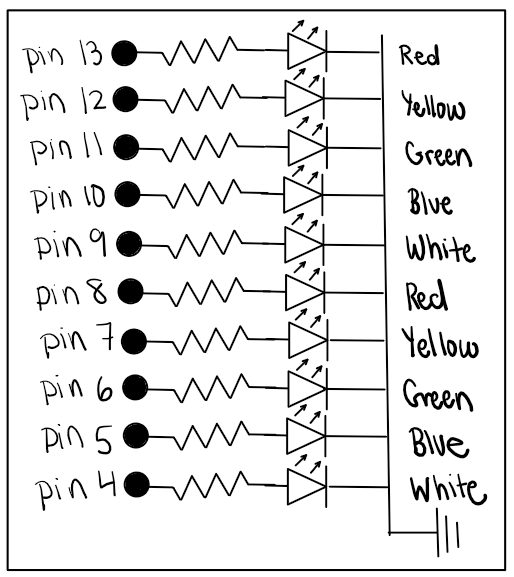 pin 13 Red
pin 12 Yellow
pin 11 Green
pin 10 Blue
pin 9 White
pin 8 Red
pin 7 Yellow
pin 6 Green
pin 5 Blue
pin 4 White